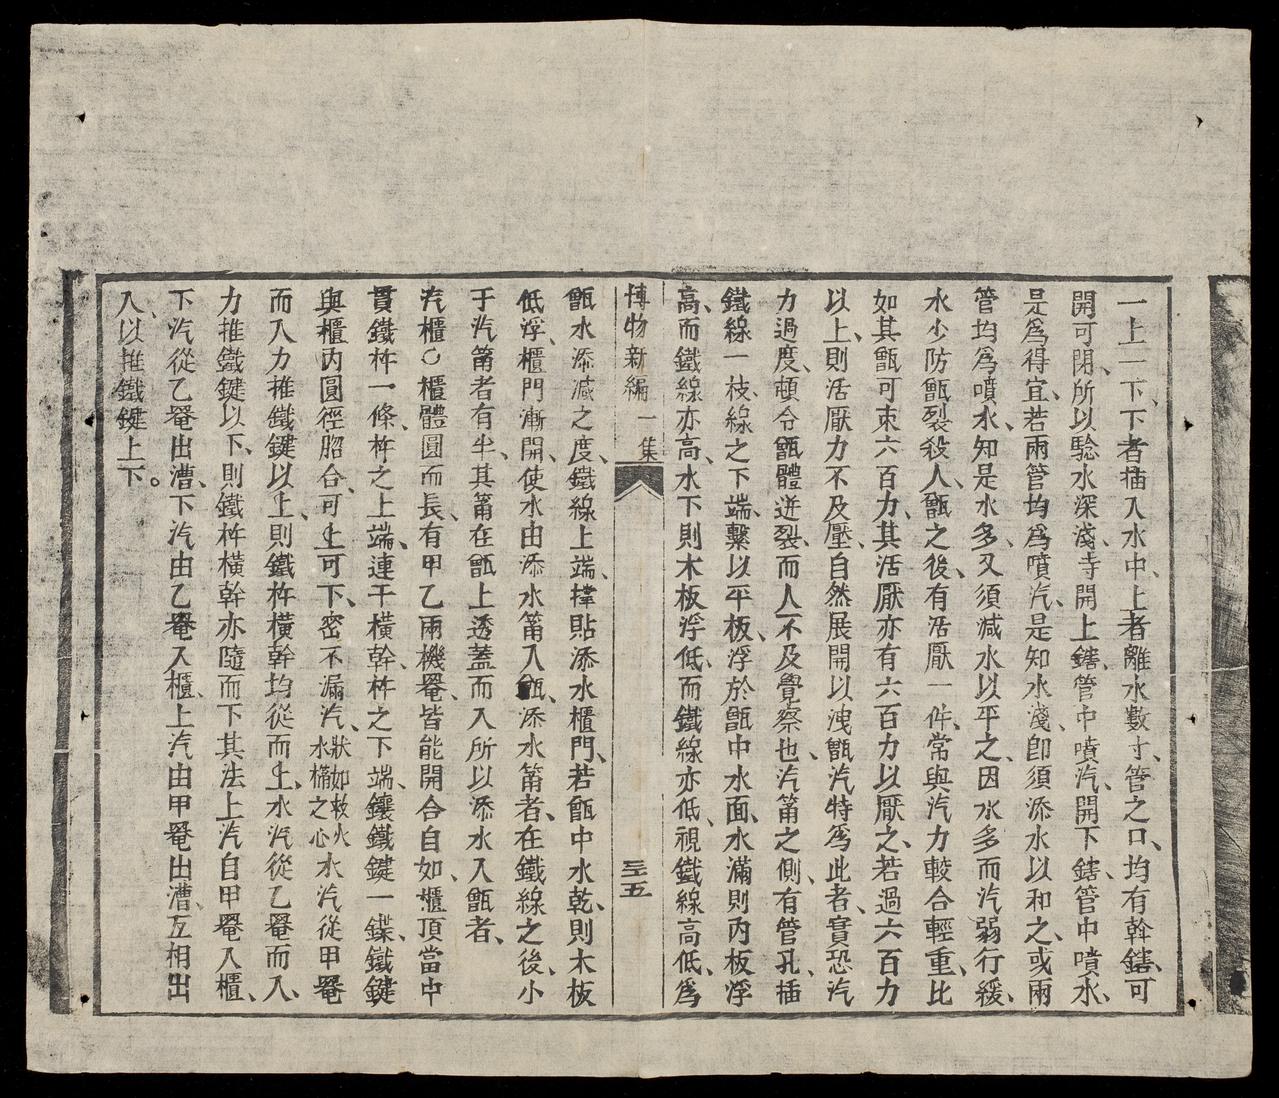 一上一下、下者揷入水中、上者離水數寸、管之口、均有幹鎋、可
開可閉、所以騐水深淺、寺開上鎋、管中噴汽、開下鎋、管中噴水、
是爲得宜、若兩管均爲噴汽、是知水淺、卽須添水以和之、或兩
管均爲噴水、知是水多、又須減水以平之、因水多而汽弱行緩、
水少防甑裂殺人、甑之後、有活厭一件、常與汽力較合輕重、比
如其甑可束六百力、其活厭亦有六百力以厭之、若過六百力
以上、則活厭力不及壓、自然展開以洩甑汽、特爲此者、實恐汽
力過度、頓令甑體迸裂、而人不及覺察也、汽筩之側、有管孔、插
鐵線一枝、線之下端、繫以平板、浮於甑中水面、水滿則內板浮
高、而鐵線亦高、水下則木板浮低、而鐵線亦低、視鐵線高低、爲
博物新編 一集 三五
甑水添減之度、鐵線上端、擈貼添水櫃門、若甑中水乾、則木板
低浮、櫃門漸開、使水由添水筩入甑、添水筩者、在鐵線之後、小
于汽筩者有半、其筩在甑上透蓋而入所以添水入甑者、
汽櫃○櫃體圓而長、有甲乙兩機罨、皆能開合自如、櫃頂當中
貫鐵杵一條、杵之上端、連干橫幹、杵之下端、鑲鐵鍵一鍱、鐵鍵
與櫃內圓徑脗合、可上可下、密不漏汽、狀如救火水櫛之心水汽從甲罨
而入力推鐵鍵以上、則鐵杵橫幹均從而上、水汽從乙罨而入、
力推鐵鍵以下、則鐵杵橫幹亦隨而下其法上汽自甲罨入櫃、
下汽從乙罨出漕、下汽由乙罨入櫃、上汽由甲罨出漕、互相出
入、以推鐵鍵上下。